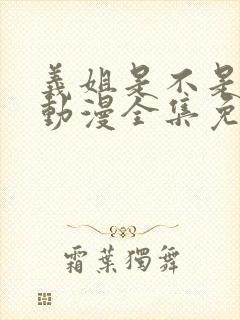 義姐是不是
動漫全集免
霜葉獨舞